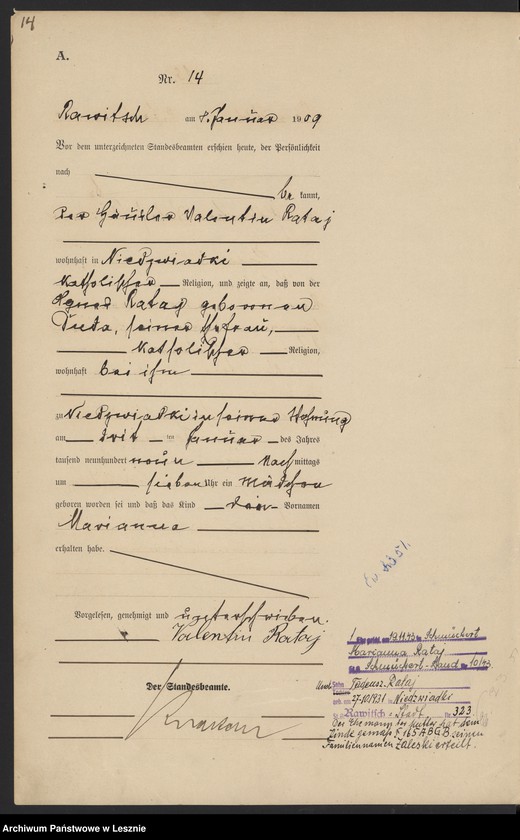 14
A.
Nr. 14
Rawitsch am 8. Januar 1909
Vor dem unterzeichneten Standesbeamten erschien heute, der Persönlichkeit
nach
be kannt,
der Häusler Valentin Rataj
wohnhaft in Niedzwiadki
katholischer Religion, und zeigte an, daß von der
Agnes Rataj geborenen
Duda, seiner Ehefrau,
katholischer Religion,
wohnhaft bei ihm
zu Niedzwiadki in seiner Wohnung
am drit ten Januar des Jahres
tausend neunhundert neun Nach mittags
um sieben Uhr ein Mädchen
geboren worden sei und daß das Kind den Vornamen
Marianna
erhalten habe.
Vorgelesen, genehmigt und unterschrieben.
Valentin Rataj
Der Standesbeamte.
1. Ehe geschl. am 13.11.43 in Schmückert
Marianna Rataj
St.A. Schmückert-Stand Nr. 10/43.
Sohn
Tadeusz Rataj
geb. am 27.10.1931 in Niedzwiadki
Rawitsch - Stadt Nr. 323
Der Ehemann der Mutter hat dem
Kinde gemäss § 165 ABGB seinen
Familiennamen Zaleski erteilt.
Archiwum Państwowe w Lesznie